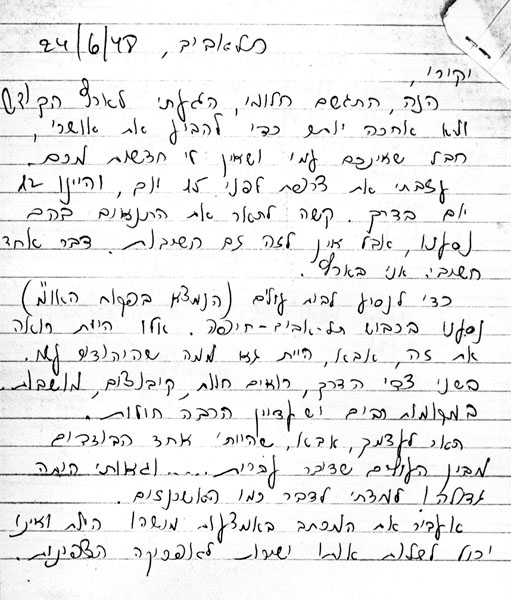 תל אביב, 24/6/48
יקירי,
הנה, התגשם חלומי, הגעתי לארץ הקודש
ולא אחכה יותר כדי להביע את אושרי,
חבל שאינכם עמי ושאין לי חדשות מכם.
עזבתי את צרפת לפני 15 יום, והיינו 12
יום בדרך. קשה לתאר את התנאים בהם
נסענו, אבל אין לזה גם חשיבות. דבר אחד
חשוב: אני בארץ.
כדי לנסוע לבית עולים (הנמצא בפקוח האו"ם)
נסענו בכביש תל-אביב-חיפה. אלו היית רואה
את זה, אבא, היית גאה ממה שהיהודים עשו.
בשני צידי הדרך, רואים חוות, קיבוצים, מושבות.
במקומות רבים יש עדיין הרבה חולות.
תאר לעצמך, אבא, שהייתי אחד הבודדים
מבין העולים שדיבר עברית..... וגאוותי היתה
גדולה! למדתי לדבר כמו האשכנזים.
אעביר את המכתב באמצעות מישהו היות ואינו
יכול לשלוח אותו ישירות לאפריקה הצפונית.